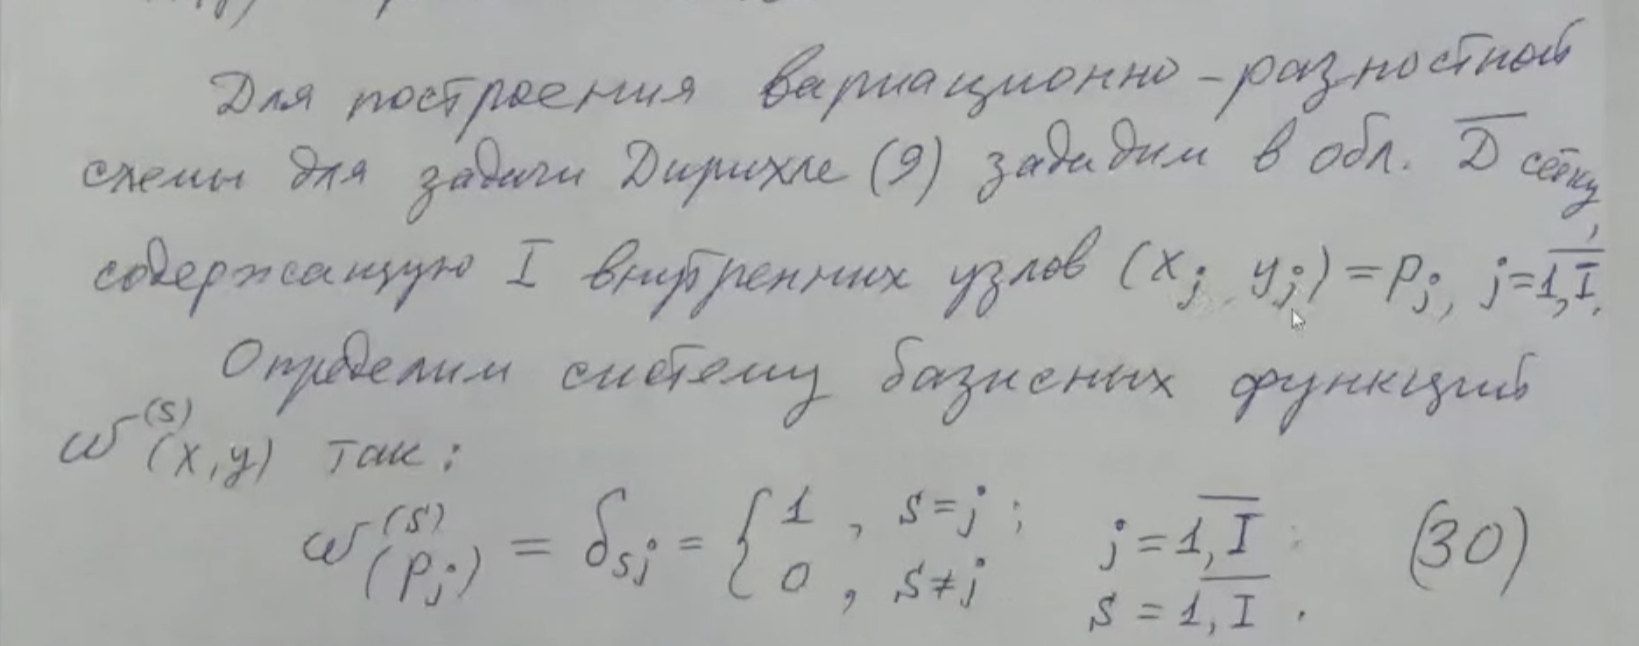 Для построения вариационно-разностной
схемы для задачи Дирихле (9) зададим в обл. D̅ сетку,
содержащую I внутренних узлов (x_j, y_j) = P_j, j=1,I.
Определим систему базисных функций
ω^(s)(x,y) так:
ω^(s)(P_j) = δ_sj = { 1, s=j; 0, s≠j j=1,I; s=1,I. (30)